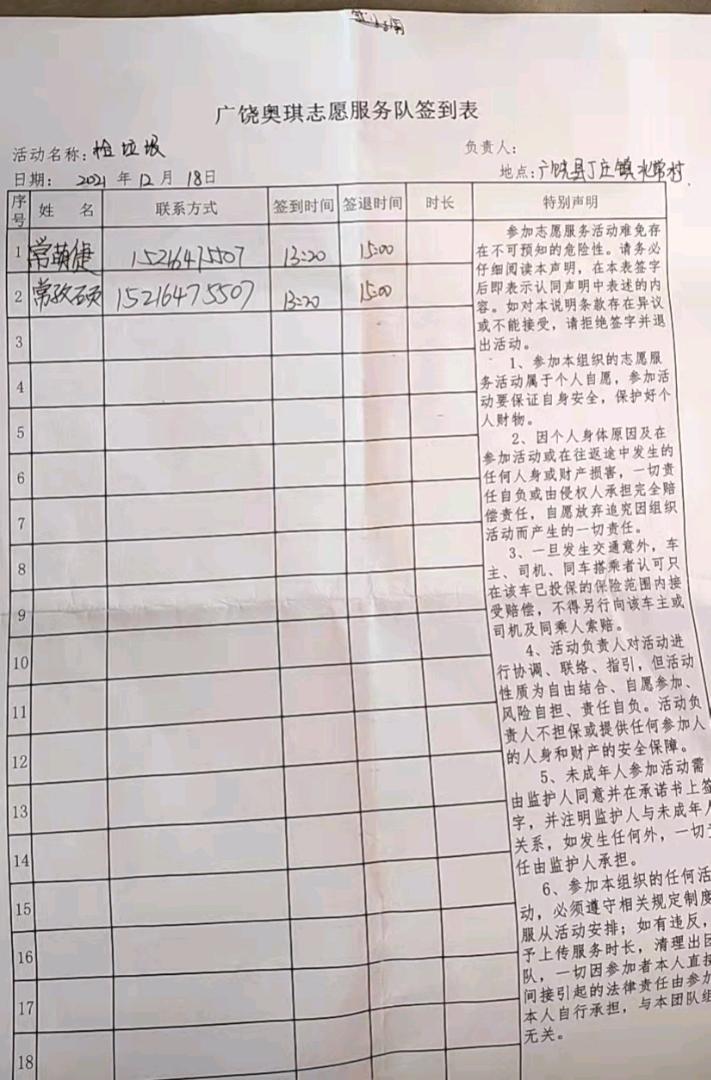 广饶奥琪志愿服务队签到表
活动名称：捡垃圾 负责人：
日期： 2021 年 12 月 18日 地点：广饶县丁庄镇北常村
序号 姓 名 联系方式 签到时间 签退时间 时长 特别声明
1 常萌倢 15216475507 13:20 15:00
2 常孜硕 15216475507 13:20 15:00
3
4
5
6
7
8
9
10
11
12
13
14
15
16
17
18
参加志愿服务活动难免存
在不可预知的危险性。请务必
仔细阅读本声明，在本表签字
后即表示认同声明中表述的内
容。如对本说明条款存在异议
或不能接受，请拒绝签字并退
出活动。
1、参加本组织的志愿服
务活动属于个人自愿，参加活
动要保证自身安全，保护好个
人财物。
2、因个人身体原因及在
参加活动或在往返途中发生的
任何人身或财产损害，一切责
任自负或由侵权人承担完全赔
偿责任，自愿放弃追究因组织
活动而产生的一切责任。
3、一旦发生交通意外，车
主、司机、同车搭乘者认可只
在该车已投保的保险范围内接
受赔偿，不得另行向该车主或
司机及同乘人索赔。
4、活动负责人对活动进
行协调、联络、指引，但活动
性质为自由结合、自愿参加、
风险自担、责任自负。活动负
责人不担保或提供任何参加人
的人身和财产的安全保障。
5、未成年人参加活动需
由监护人同意并在承诺书上签
字，并注明监护人与未成年人
关系，如发生任何外，一切
任由监护人承担。
6、参加本组织的任何活
动，必须遵守相关规定制度
服从活动安排；如有违反，
予上传服务时长，清理出团
队，一切因参加者本人直接
间接引起的法律责任由参加
本人自行承担，与本团队组
无关。